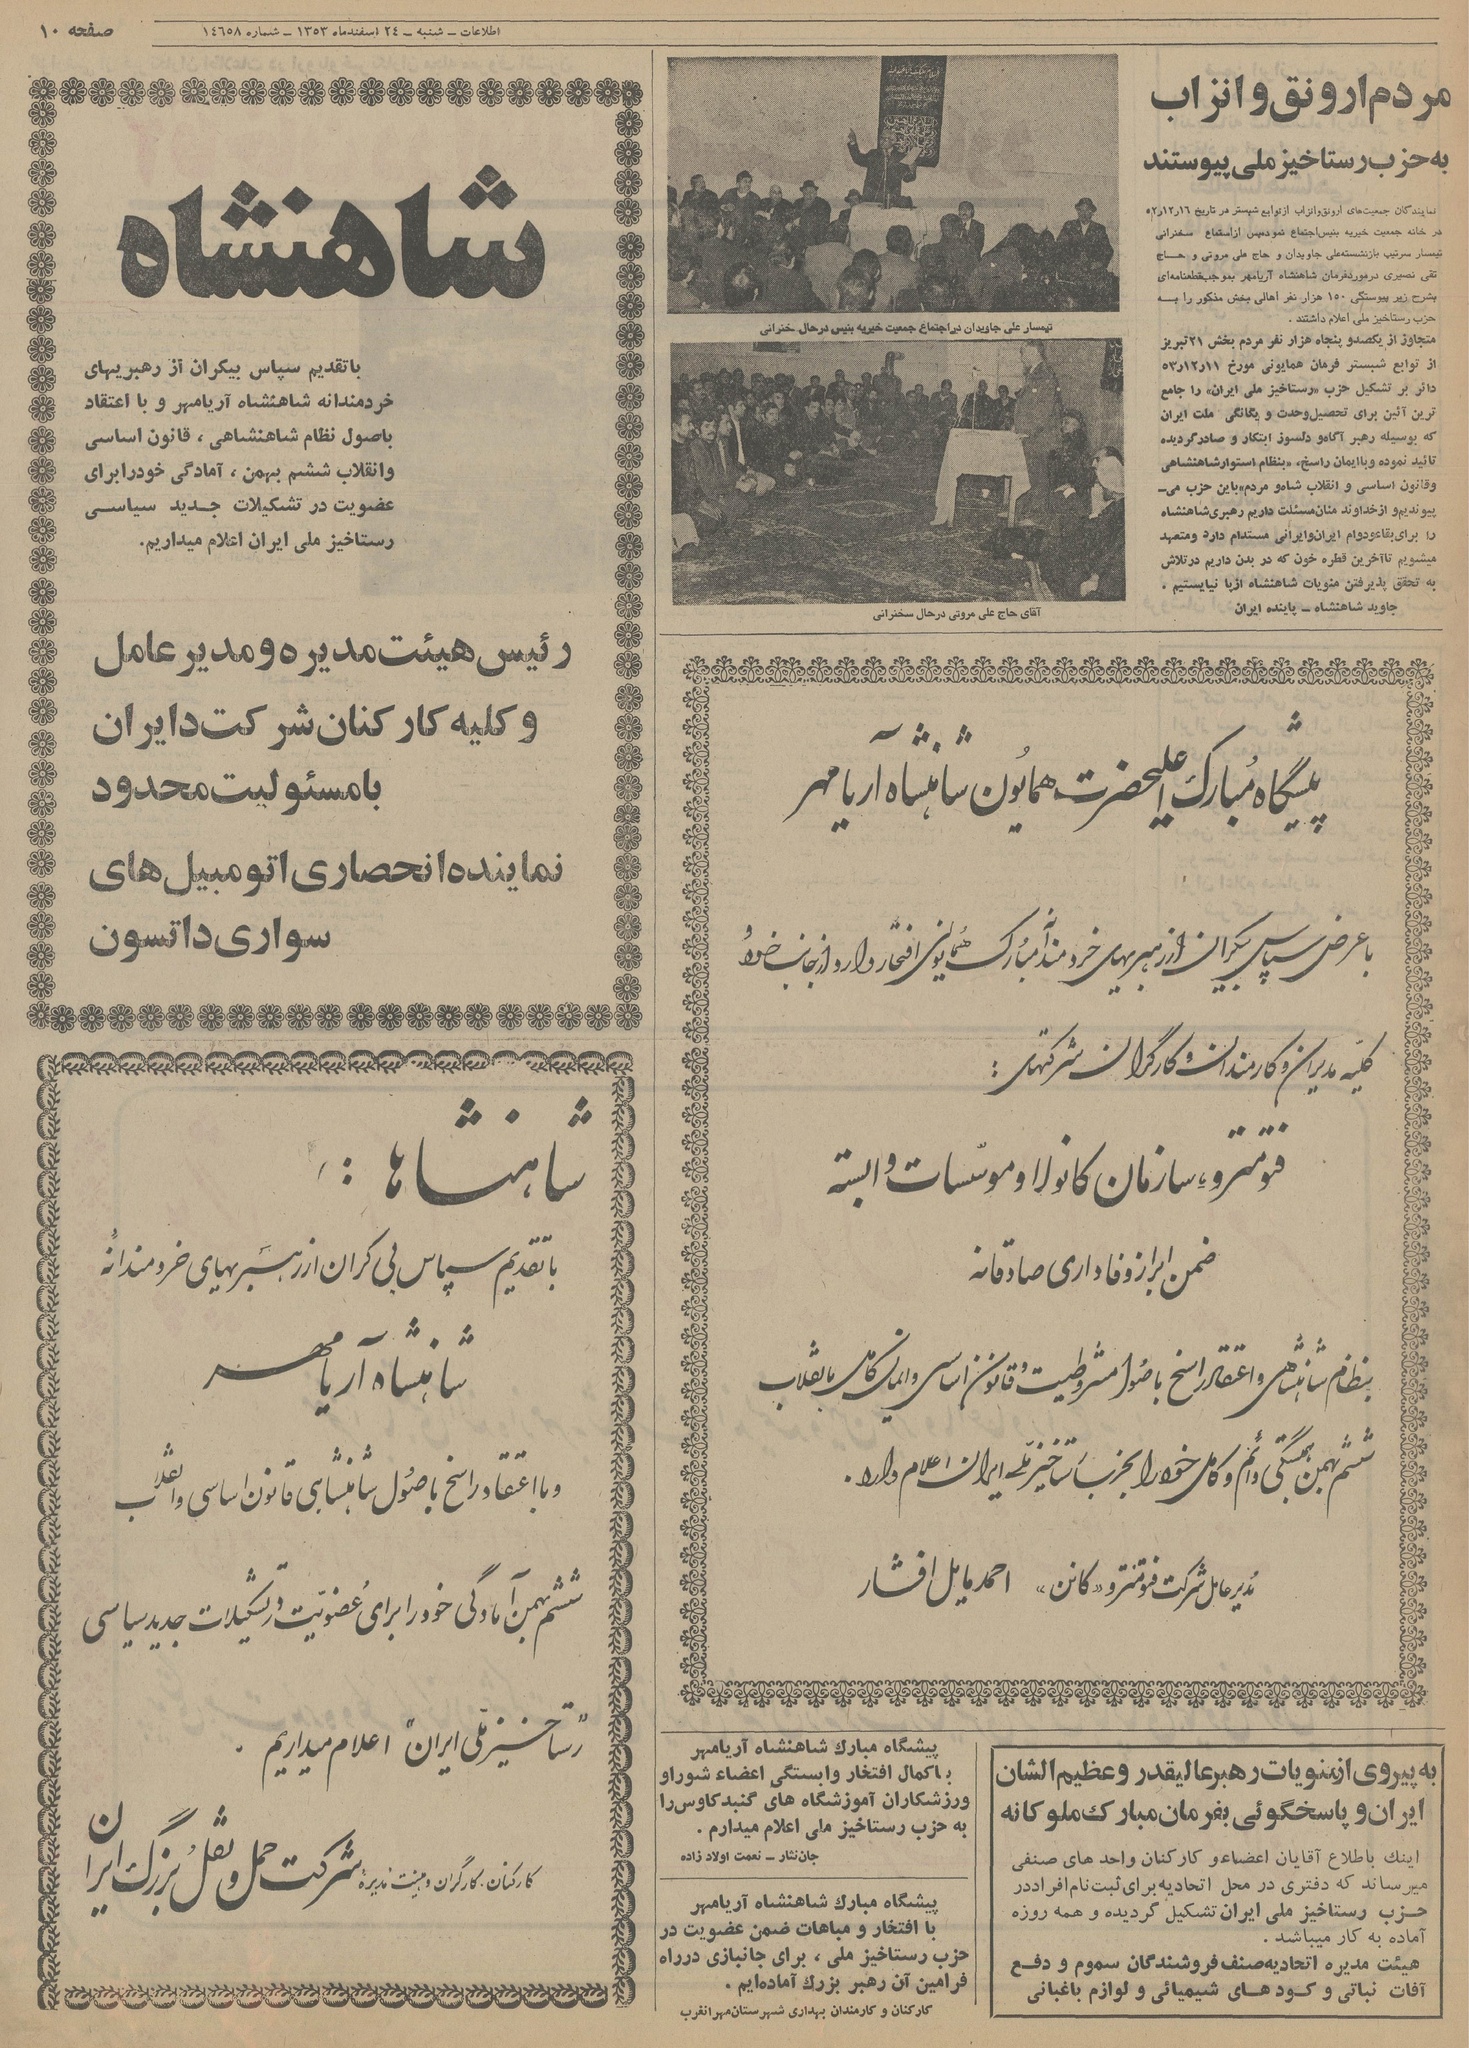 صفحه ۱۰
اطلاعات ـ شنبه ـ ۲۴ اسفندماه ۱۳۵۳ ـ شماره ۱۴۶۵۸
مردم ارونق و انزاب
به حزب رستاخیز ملی پیوستند
نمایندگان جمعیت‌های ارونق‌وانزاب ازتوابع شبستر در تاریخ ۵۲ر۱۲ر۱۶
در خانه جمعیت خیریه بنیس‌اجتماع نموده‌پس ازاستماع سخنرانی
تیمسار سرتیپ بازنشسته‌علی جاویدان و حاج علی مروتی و حاج
تقی نصیری درموردفرمان شاهنشاه آریامهر بموجب‌قطعنامه‌ای
بشرح زیر پیوستگی ۱۵۰ هزار نفر اهالی بخش مذکور را به
حزب رستاخیز ملی اعلام داشتند .
متجاوز از یکصدو پنجاه هزار نفر مردم بخش ۲۱تبریز
از توابع شبستر فرمان همایونی مورخ ۵۳ر۱۲ر۱۱
دائر بر تشکیل حزب «رستاخیز ملی ایران» را جامع
ترین آئین برای تحصیل‌وحدت و یگانگی ملت ایران
که بوسیله رهبر آگاه‌و دلسوز ابتکار و صادرگردیده
تائید نموده وباایمان راسخ، «بنظام استوارشاهنشاهی
وقانون اساسی و انقلاب شاه‌و مردم»باین حزب می‌ـ
پیوندیم‌و ازخداوند منان‌مسئلت داریم رهبری‌شاهنشاه
را برای‌بقاءودوام ایران‌وایرانی مستدام دارد ومتعهد
میشویم تاآخرین قطره خون که در بدن داریم درتلاش
به تحقق پذیرفتن منویات شاهنشاه ازپا نیایستیم .
جاوید شاهنشاه ـ پاینده ایران
تیمسار علی جاویدان دراجتماع جمعیت خیریه بنیس درحال سخنرانی
آقای حاج علی مروتی درحال سخنرانی
شاهنشاه
باتقدیم سپاس بیکران از رهبریهای
خردمندانه شاهنشاه آریامهر و با اعتقاد
باصول نظام شاهنشاهی ، قانون اساسی
وانقلاب ششم بهمن ، آمادگی خودرابرای
عضویت در تشکیلات جدید سیاسی
رستاخیز ملی ایران اعلام میداریم.
رئیس هیئت مدیره و مدیر عامل
و کلیه کارکنان شرکت دایران
با مسئولیت محدود
نماینده انحصاری اتومبیل های
سواری داتسون
پیشگاه مبارک اعلیحضرت همایون شاهنشاه آریامهر
با عرض سپاس بیکران از رهبریهای خردمندانه مبارک همایونی افتخار دارد از جانب خود و
کلیه مدیران و کارمندان و کارگران شرکتهای :
فتومترو، سازمان کانولا و موسسات وابسته
ضمن ابراز وفاداری صادقانه
بنظام شاهنشاهی و اعتقاد راسخ باصول مشروطیت و قانون اساسی و ایمان کامل بانقلاب
ششم بهمن بستگی دائم و کامل خود را بحزب رستاخیز ملی ایران اعلام دارد .
مدیر عامل شرکت فتومترو «کانن» احمد مایل افشار
شاهنشاها :
با تقدیم سپاس بی کران از رهبریهای خردمندانه
شاهنشاه آریامهر
و با اعتقاد راسخ باصول شاهنشاهی قانون اساسی و انقلاب
ششم بهمن آمادگی خود را برای عضویت در تشکیلات جدید سیاسی
"رستاخیز ملی ایران" اعلام میداریم .
کارکنان، کارگران و هیئت مدیره شرکت حمل و نقل بزرگ ایران
پیشگاه مبارک شاهنشاه آریامهر
با کمال افتخار وابستگی اعضاء شوراو
ورزشکاران آموزشگاه های گنبدکاوس‌را
به حزب رستاخیز ملی اعلام میدارم .
جان‌نثار ـ نعمت اولاد زاده
پیشگاه مبارک شاهنشاه آریامهر
با افتخار و مباهات ضمن عضویت در
حزب رستاخیز ملی ، برای جانبازی درراه
فرامین آن رهبر بزرگ آماده‌ایم .
کارکنان و کارمندان بهداری شهرستان‌مهرانغرب
به پیروی از منویات رهبر عالیقدر و عظیم الشان
ایران و پاسخگوئی بفرمان مبارک ملوکانه
اینک باطلاع آقایان اعضاءو کارکنان واحد های صنفی
میرساند که دفتری در محل اتحادیه‌برای‌ثبت‌نام‌افراددر
حزب رستاخیز ملی ایران تشکیل گردیده و همه روزه
آماده به کار میباشد .
هیئت مدیره اتحادیه‌صنف‌فروشندگان سموم و دفع
آفات نباتی و کود های شیمیائی و لوازم باغبانی